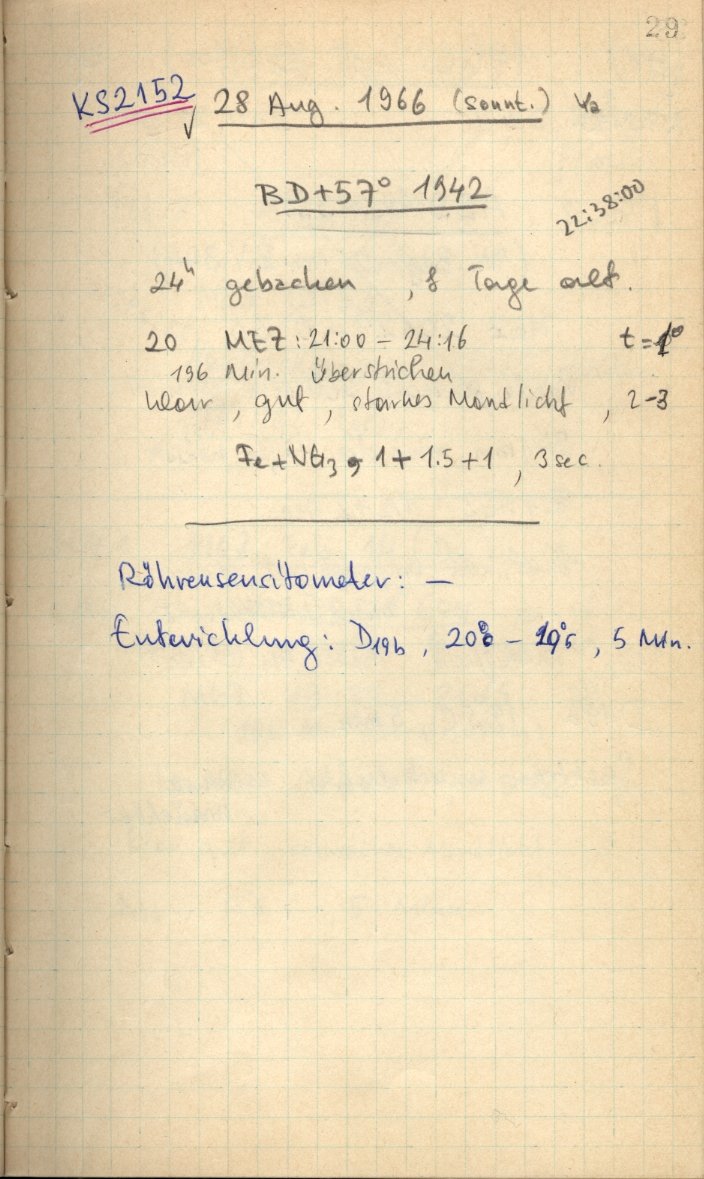 29
KS2152 ✓ 28 Aug. 1966 (sonnt.)
BD+57° 1942
22:38:00
24ʰ gebacken , 8 Tage alt.
20 MEZ: 21:00 – 24:16 t=1°
196 Min. überstrichen
klar , gut , starkes Mondlicht , 2-3
Fe+NH₃ , 1+1.5+1 , 3 sec.
Röhrensensitometer: —
Entwicklung: D19b , – , 5 Min.